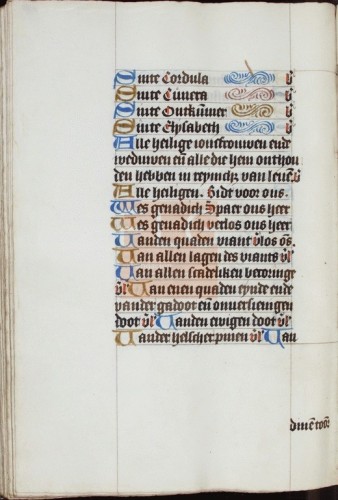 Sinte Cordula b̛
Sinte Cunera b̛
Sinte Ontkūmer b̛
Sinte Elysabeth b̛
Alle heilige ionffrouwen ende
weduwen en̄ alle die hem onthou
den hebben in reynich̛ van leuē b̛
Alle heiligen. Bidt voor ons.
Wes genadich Spaer ons heer
Wes genadich verlos ons heer
Van den quaden viant v̛los ōs.
Van allen lagen des viants v̛l
Van allen scadeliken becoringē
v̛l Van enen quaden eynde ende
van der gadoot en̄ onuersiengen
doot v̛l Van den ewigen doot v̛l
Van der helscher pinen v̛l Van